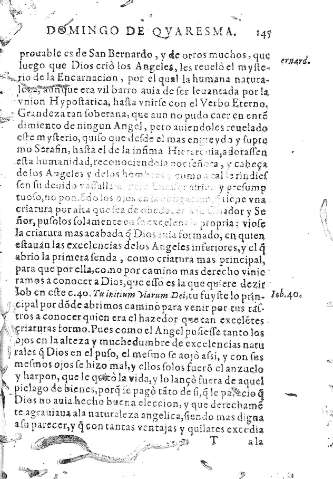 DOMINGO DE QVARESMA. 145
prouable es de San Bernardo, y de otros muchos, que
ernard.
luego que Dios crió los Angeles, les reueló el myste-
rio de la Encarnacion, por el qual la humana natura-
leza, aunque era vil barro auia de ser leuantada por la
vnion Hypostatica, hasta vnirse con el Verbo Eterno.
Grandeza tan soberana, que aun no pudo caer en enté
dimiento de ningun Angel, pero auiendoles reuelado
este mysterio, quiso que desde el mas engreydo y supre
mo Serafin, hasta el de la infima Hierarquia, adorassen
esta humanidad, reconociendola por señora, y cabeça
de los Angeles y de los hombres, como a tal rindies
sen su deuido vassallaje, pero Lucifer altiuo y presump
tuoso, no poniendo los ojos en que
criatura por alta que sea de Criador y Se
ñor, pusolos solamente en su excelencia propria: viose
la criatura mas acabada q̃ Dios auia formado, en quien
estauan las excelencias de los Angeles inferiores, y el q̃
abrio la primera senda, como criatura mas principal,
para que por ella, como por camino mas derecho vinie
ramos a conocer a Dios, que esso es la que quiere dezir
Iob en este c.40. Tu initium viarum Dei, tu fuyste lo prin-
Iob.40.
cipal por dóde abrimos camino para venir por tus ras-
tros a conocer quien era el hazedor que tan exceletes
criaturas formo. Pues como el Angel pusiesse tanto los
ojos en la alteza y muchedumbre de excelencias natu
rales q̃ Dios en el puso, el mesmo se aojó assi, y con sus
mesmos ojos se hizo mal, y ellos solos fueró el anzuelo
y harpon, que le quitó la vida, y lo lançó fuera de aquel
pielago de bienes, porq̃ se pagó táto de si, q̃ le parecio q̃
Dios no auia hecho buena eleccion, y que derechamé
te agrauiaua a la naturaleza angelica, siendo mas digna
a su parecer, y q̃ con tantas ventajas y quilates excedia
T a la